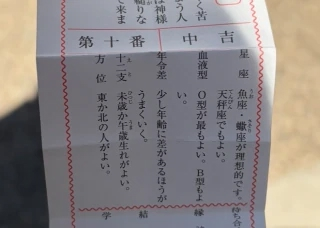 第十番
中吉
星座 魚座・蠍座が理想的です。
天秤座でもよい。
血液型 O型が最もよい。B型もよ
い。
年令差 少し年齢に差があるほうが
うまくいく。
十二支 未歳か午歳生れがよい。
方位 東か北の人がよい。